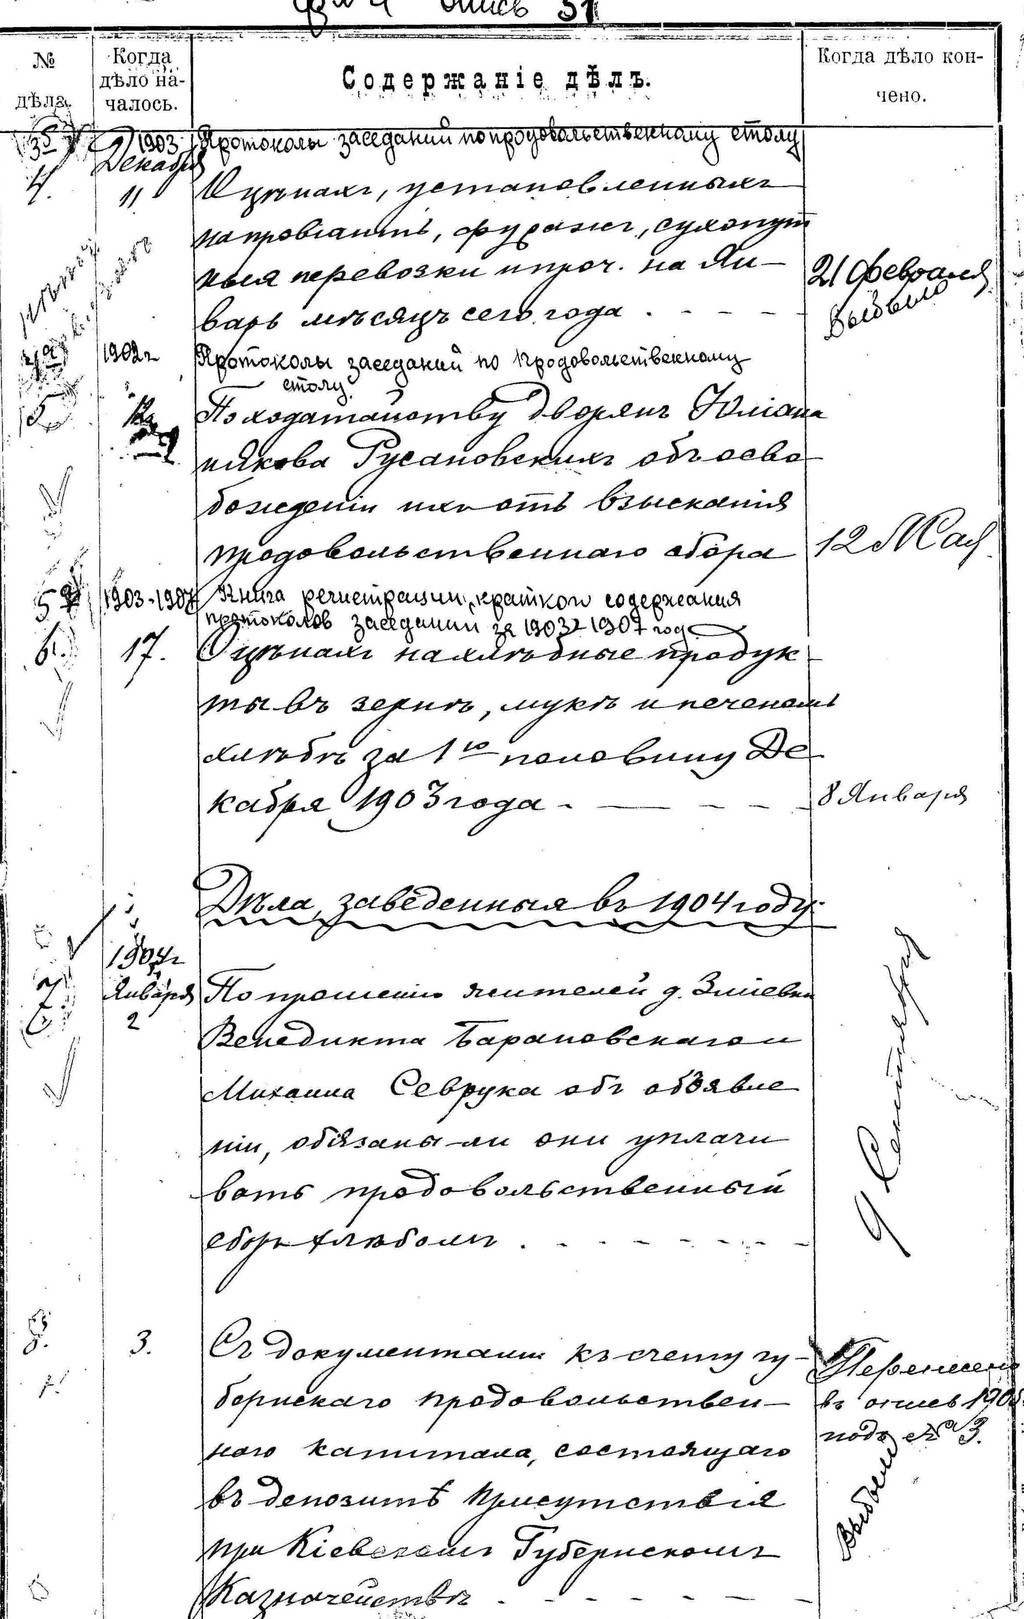 опись 51
№ дѣла.
Когда дѣло началось.
Содержаніе дѣлъ.
Когда дѣло кончено.
1903
Протоколы заседаний по продовольственному столу
Декабря
4.
11
О цѣнахъ, установленныхъ
на провіантъ, фуражъ, сухопут
ныя перевозки и проч. на Ян-
варь мѣсяцъ сего года
21 Февраля
Выбыло
1902г
Протоколы заседаний по продовольственному
столу
5
По ходатайству дворянъ Юліана
и Якова Русановскихъ объ осво
божденіи ихъ отъ взысканія
продовольственнаго сбора
12 Мая
5а
1903-1907
Книга регистрации, краткого содержания
протоколов заседаний за 1903-1907 год
6.
17.
О цѣнахъ на хлѣбные продук-
ты въ зернѣ, мукѣ и печеномъ
хлѣбѣ за 1ю половину Де
кабря 1903 года
8 Января
Дѣла, заведенныя въ 1904 году:
1904г
Января
2
7.
По прошенію жителей д. Зміевки
Венедикта Барановскаго и
Михаила Севрука объ объявле
ніи, обязаны-ли они уплачи
вать продовольственный
сборъ хлѣбомъ
9 Сентября
8.
3.
Съ документами къ счету гу-
бернскаго продовольствен-
наго капитала, состоящаго
въ депозитѣ Присутствія
при Кіевскомъ Губернскомъ
Казначействѣ
Перенесено
въ опись 190
подъ № 3.
Выбыло